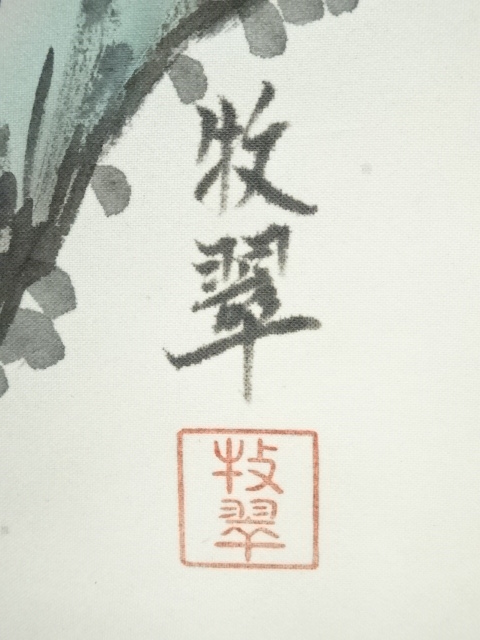 牧
翠
牧
翠